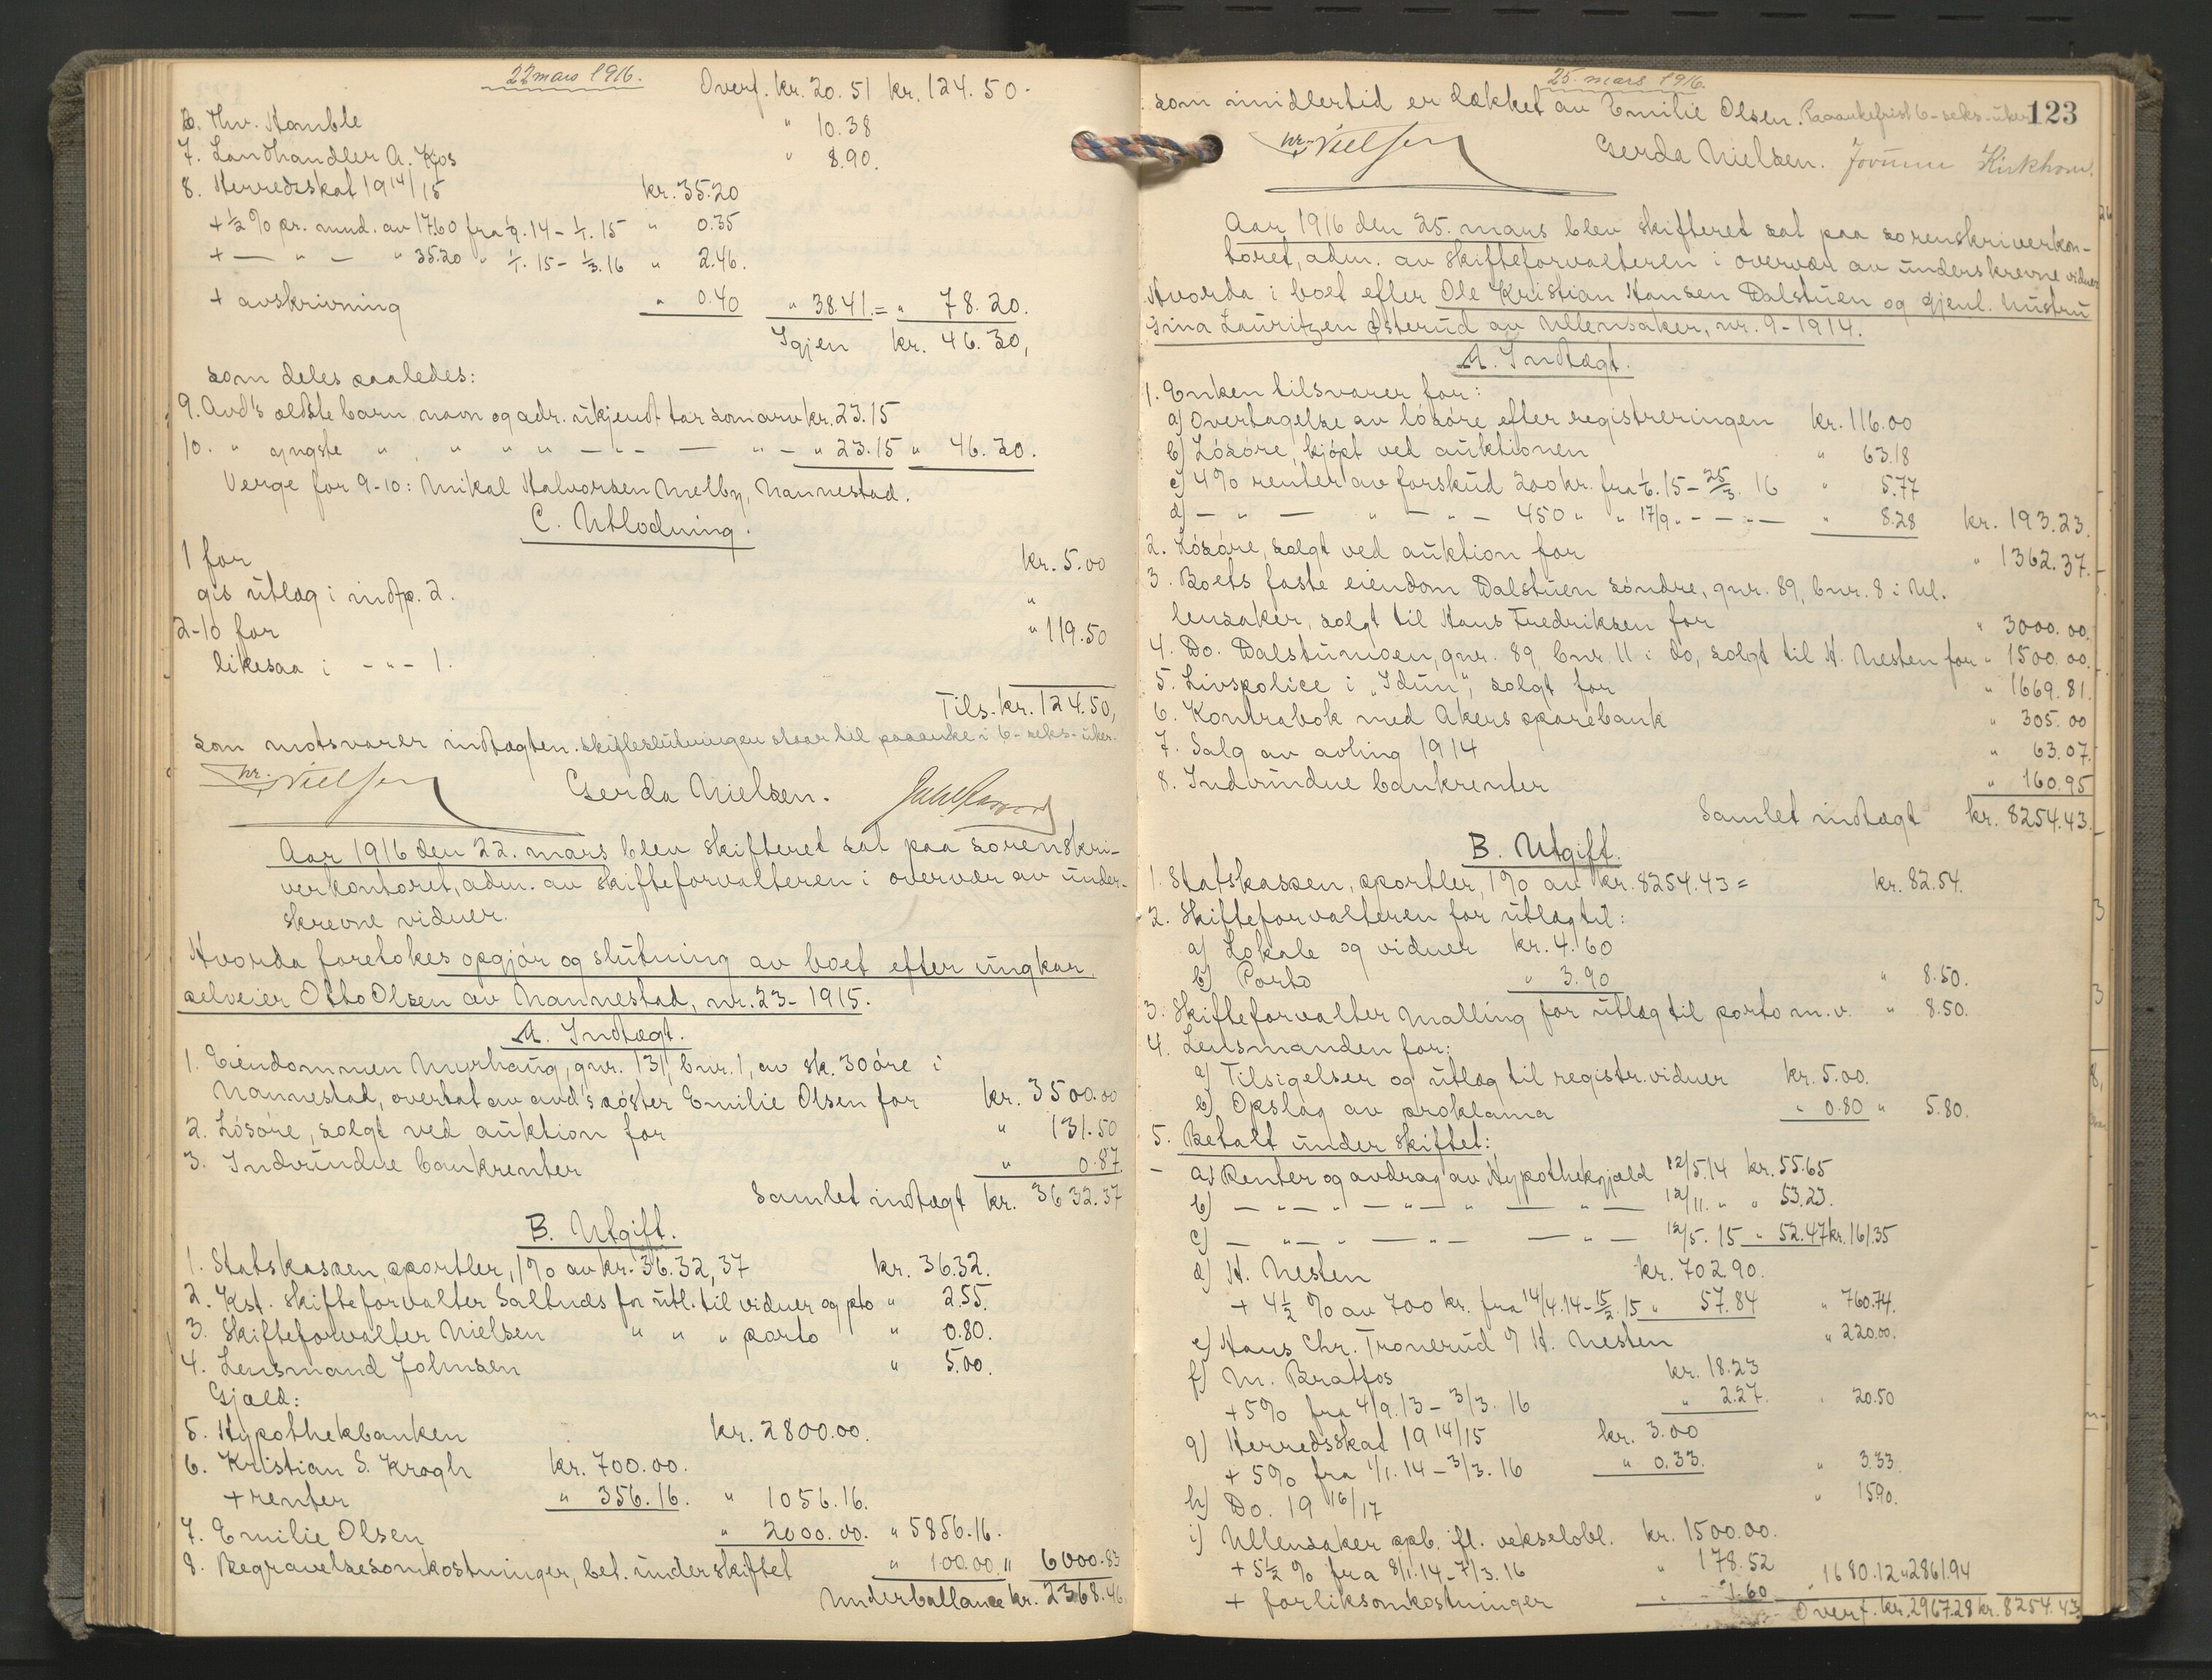 22 mars 1916.
Overf. kr. 20.51 kr. 124.50.
6. Thv. Homble " 10.38
7. Landhandler A. Kjos " 8.90.
8. Herredsskat 1914/15 kr. 35.20
+ ½ % pr. mnd. av 17.60 fra 1/9. 14 - 1/1. 15 " 0.35
+ — " — " 35.20 " 1/1. 15 - 1/3. 16 " 2.46.
+ avskrivning " 0.40 " 38.41. = " 78.20.
Igjen kr. 46.30,
som deles saaledes:
9. Avd's ældste barn navn og adr. ukjendt tar som arv kr. 23.15
10. " yngste " , " " " — " — — " — " 23.15 " 46.30.
Verge for 9-10: Mikal Halvorsen Melby, Nannestad.
C. Utlodning.
1 for kr. 5.00
gis utlæg i indtp. 2. "
2-10 for " 119.50
likesaa i - " - 1.
Tils. kr. 124.50,
som motsvarer indtægten. Skifteslutningen staar til paaanke i 6 - seks - uker.
Nielsen Gerda Nielsen.
Aar 1916 den 22. mars blev skifteret sat paa sorenskri-
verkontoret, adm. av skifteforvalteren i overvær av under-
skrevne vidner.
Hvorda foretokes opgjör og slutning av boet efter ungkar,
selveier Otto Olsen av Nannestad, nr. 23 - 1915.
A. Indtægt.
1. Eiendommen Murhaug, gnr. 131, bnr. 1, av sk. 30 öre i
Nannestad, overtat av avd's söster Emilie Olsen for kr. 3500.00
2. Lösöre, solgt ved auktion for " 131.50
3. Indvundne bankrenter " 0.87.
Samlet indtægt kr. 3632.37
B. Utgift.
1. Statskassen, sportler, 1 % av kr. 36.32,37 kr. 36.32.
2. Kst. skifteforvalter Saltnes for utl. til vidner og pto " 2.55.
3. Skifteforvalter Nielsen " " " porto " 0.80.
4. Lensmand Johnsen " 5.00.
Gjæld:
5. Hypothekbanken kr. 2800.00.
6. Kristian S. Krogh kr. 700.00.
+ renter " 356.16. " 1056.16.
7. Emilie Olsen " 2000.00. " 5856.16.
8. Begravelsesomkostninger, bet. under skiftet " 100.00 " 6000.83
Underballance kr. 2368.46
25. mars 1916.
123
som imidlertid er dækket av Emilie Olsen. Paaankefrist 6 - seks - uker
Nielsen Gerda Nielsen. Kirkhorn.
Aar 1916 den 25. mars blev skifteret sat paa sorenskriverkon-
toret, adm. av skifteforvalteren i overvær av underskrevne vidner
Hvorda i boet efter Ole Kristian Hansen Dalstuen og gjenl. hustru
Gina Lauritzen Østerud av Ullensaker, nr. 9 - 1914.
A. Indtægt.
1. Enken tilsvarer for:
a) Overtagelse av lösöre efter registreringen kr. 116.00
b) Lösöre, kjöpt ved auktionen " 63.18
c) 4 % renter av forskud 200 kr. fra 1/6. 15 - 25/3. 16 " 5.77
d) — " — " — " — 450 " " 17/9 " - — " — " 8.28 kr. 193.23.
2. Lösöre, solgt ved auktion for " 1362.37.
3. Boets faste eiendom Dalstuen söndre, gnr. 89, bnr. 8 i Ul-
lensaker, solgt til Hans Fredriksen for " 3000.00.
4. Do. Dalstumoen, gnr. 89, bnr. 11 i do, solgt til H. Nesten for " 1500.00.
5. Livspolice i "Idun", solgt for " 1669.81.
6. Kontrabok med Akers sparebank " 305.00
7. Salg av avling 1914 " 63.07.
8. Indvundne bankrenter " 160.95
Samlet indtægt kr. 8254.43.
B. Utgift.
1. Statskassen, sportler, 1 % av kr. 8254.43 = kr. 82.54.
2. Skifteforvalteren for utlæg til:
a) Lokale og vidner kr. 4.60
b) Porto " 3.90 " 8.50.
3. Skifteforvalter Malling for utlæg til porto m.v. " 8.50.
4. Lensmanden for:
a) Tilsigelser og utlæg til registr. vidner kr. 5.00.
b) Opslag av proklama " 0.80 " 5.80.
5. Betalt under skiftet:
- a) Renter og avdrag av Hypothekgjæld 12/5 14 kr. 55.65
b) — " — " — " — " — " — 12/11. " " 53.23.
c) — " — " — " — — " — 12/5. 15 " 52.47 kr. 161.35
d) H. Nesten kr. 702.90.
+ 4½ % av 700 kr. fra 14/4. 14 - 15/2. 15 " 57.84 " 760.74.
e) Hans Chr. Tronerud v/ H. Nesten " 220.00.
f) M. Bratfos kr. 18.23
+ 5 % fra 4/9. 13 - 3/3. 16 " 2.27. " 20.50
g) Herredsskat 1914/15 kr. 3.00
+ 5 % fra 1/1. 14 - 3/3. 16 " 0.33. " 3.33.
h) Do. 1916/17 " 15.90.
i) Ullensaker spb. ifl. vekselobl. kr. 1500.00.
+ 5½ % fra 8/1. 14 - 7/3. 16 " 178.52
+ forliksomkostninger " 1.60 " 1680.12 " 2861.94
Overf. kr. 2967.28 kr. 8254.43